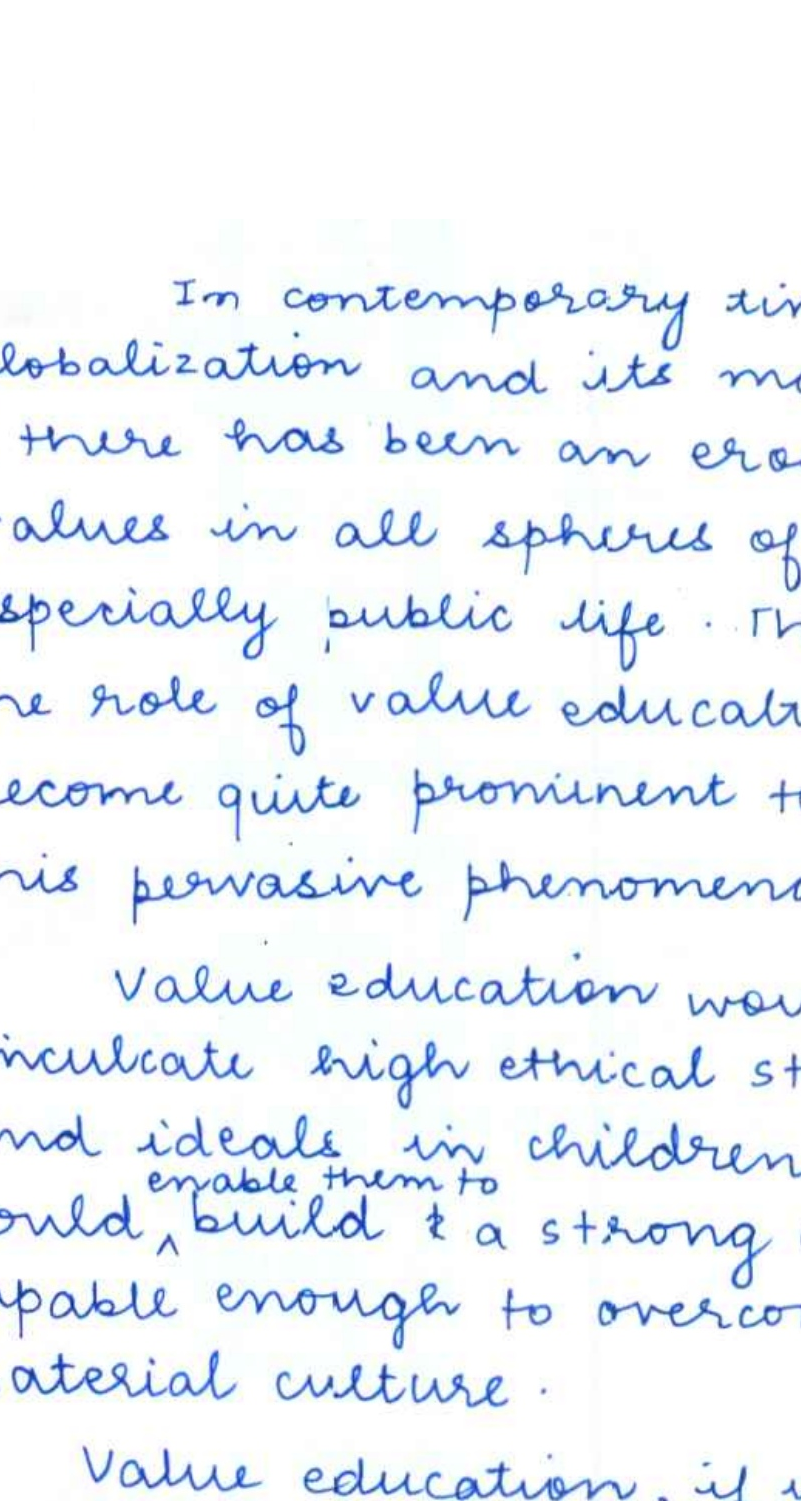 In contemporary tim
lobalization and its mo
there has been an ero
alues in all spheres of
specially public life. Th
he role of value educati
ecome quite prominent to
his pervasive phenomeno
Value education wou
nculcate high ethical st
nd ideals in children
enable them to
ould ^ build a strong
pable enough to overco
aterial culture.
Value education, if i